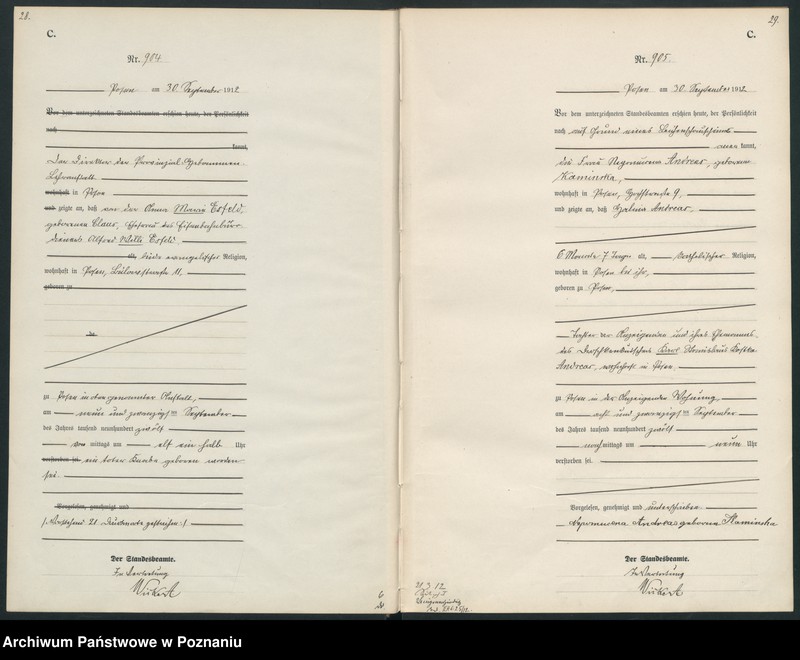 28.
C.
Nr. 904
Posen am 30. September 1912
Vor dem unterzeichneten Standesbeamten erschien heute, der Persönlichkeit
nach
kannt,
Der Direktor der Provinzial-Hebammen-
Lehranstalt
wohnhaft in Posen
und zeigte an, daß von der Anna Maria Esfeld,
geborenen Claus, Ehefrau des Eisenbahnbüro-
dieners Alfred Willi Esfeld
alt, beide evangelischer Religion,
wohnhaft in Posen, Bülowstraße 11,
geboren zu
zu Posen in der genannten Anstalt,
am neun und zwanzigsten September
des Jahres tausend neunhundert zwölf
vormittags um elf ein halb Uhr
verstorben sei. ein toter Knabe geboren worden
sei.
Vorgelesen, genehmigt und
/: Vorstehend 21 Druckworte gestrichen :/
Der Standesbeamte.
In Vertretung
29.
C.
Nr. 905
Posen am 30. September 1912
Vor dem unterzeichneten Standesbeamten erschien heute, der Persönlichkeit
nach auf Grund eines Leichenschauscheines
anerkannt,
die Frau Nepomucena Andrcas, geborene
Kaminska,
wohnhaft in Posen, 9,
und zeigte an, daß Halina Andrcas,
6 Monate 7 Tage alt, katholischer Religion,
wohnhaft in Posen bei ihr,
geboren zu Posen,
Tochter der Anzeigenden und ihres Ehemannes,
des Droschkenkutschers Stanislaus Kostka
Andrcas, wohnhaft in Posen
zu Posen in der Anzeigenden Wohnung
am acht und zwanzigsten September
des Jahres tausend neunhundert zwölf
nachmittags um neun Uhr
verstorben sei.
Vorgelesen, genehmigt und unterschrieben
Nepomucena Andrcas geborene Kaminska
Der Standesbeamte.
In Vertretung
Archiwum Państwowe w Poznaniu